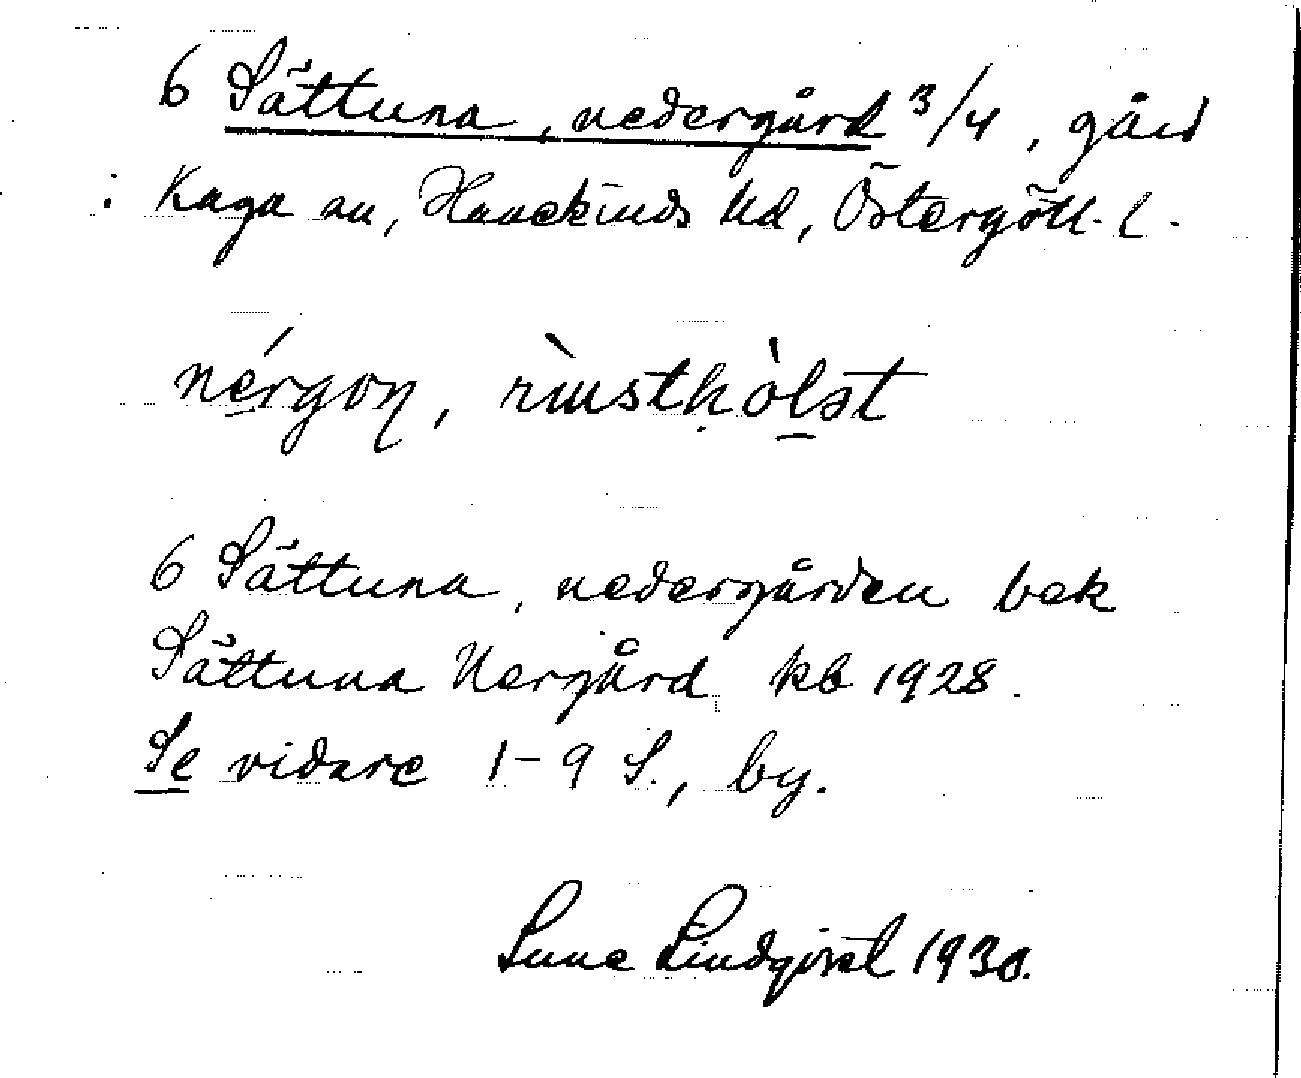 6 Sättuna, nedergård 3/4, gård
i Kaga sn, Hanekinds hd, Östergötl. l.
nérgoɳ, rùstḥòlət
6 Sättuna, nedergården bek
Sättuna Nergård kb 1928.
Se vidare 1-9 S., by.
Sune Lindqvist 1930.